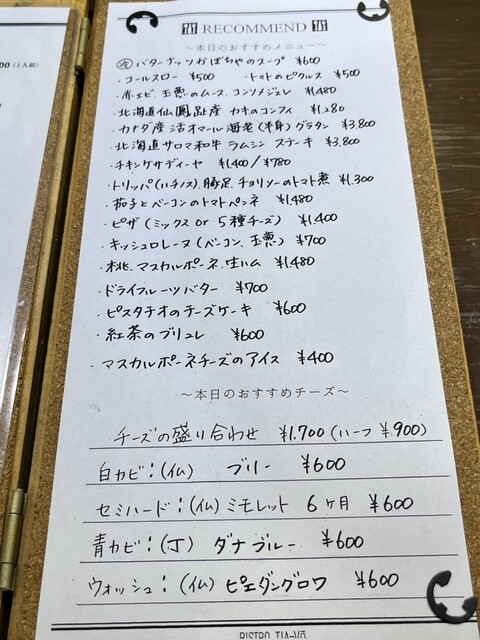 RECOMMEND
～本日のおすすめメニュー～
冷 バターナッツかぼちゃのスープ ¥600
・コールスロー ¥500 ・トマトのピクルス ¥500
・赤エビ、玉葱のムース、コンソメジュレ ¥1,480
・北海道仙鳳趾産 カキのコンフィ ¥1,280
・カナダ産 活オマール海老(半身)グラタン ¥3,800
・北海道サロマ和牛 ラムシン ステーキ ¥3,800
・チキンケサディーヤ ¥1,400/¥780
・トリッパ(ハチノス)、豚足、チョリソーのトマト煮 ¥1,300
・茄子とベーコンのトマトペンネ ¥1,480
・ピザ(ミックス or 5種チーズ) ¥1,400
・キッシュロレーヌ(ベーコン、玉葱) ¥700
・桃、マスカルポーネ、生ハム ¥1,480
・ドライフルーツバター ¥700
・ピスタチオのチーズケーキ ¥600
・紅茶のブリュレ ¥600
・マスカルポーネチーズのアイス ¥400
～本日のおすすめチーズ～
チーズの盛り合わせ ¥1,700(ハーフ ¥900)
白カビ:(仏) ブリー ¥600
セミハード:(仏)ミモレット 6ヶ月 ¥600
青カビ:(丁) ダナブルー ¥600
ウォッシュ:(仏)ピエダングロワ ¥600
00(1人前)